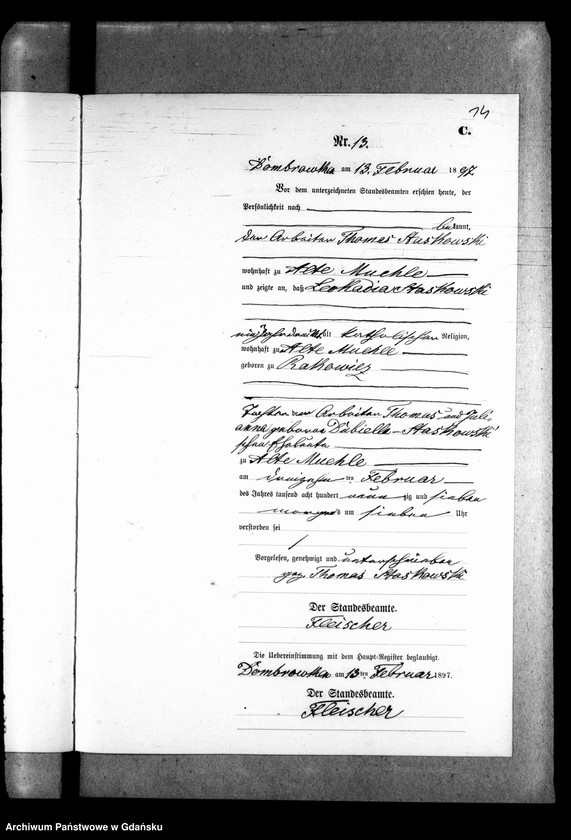 14
C.
Nr. 13.
Dombrowken am 13. Februar 1897.
Vor dem unterzeichneten Standesbeamten erschien heute, der
Persönlichkeit nach
bekannt,
der Arbeiter Thomas Staskowski
wohnhaft zu Alte Muehle
und zeigte an, daß Leokadia Staskowski
ein Jahr alt katholischer Religion,
wohnhaft zu Alte Muehle
geboren zu Rakowiez
Tochter der Arbeiter Thomas und Juli-
anna geborene Dubiella-Staskowski
schen Eheleute
zu Alte Muehle
am dreizehnten Februar
des Jahres tausend acht hundert neunzig und sieben
morgens um sieben Uhr
verstorben sei
Vorgelesen, genehmigt und unterschrieben
gez. Thomas Staskowski
Der Standesbeamte.
Fleischer
Die Uebereinstimmung mit dem Haupt-Register beglaubigt.
Dombrowken am 13ten Februar 1897.
Der Standesbeamte.
Fleischer
Archiwum Państwowe w Gdańsku